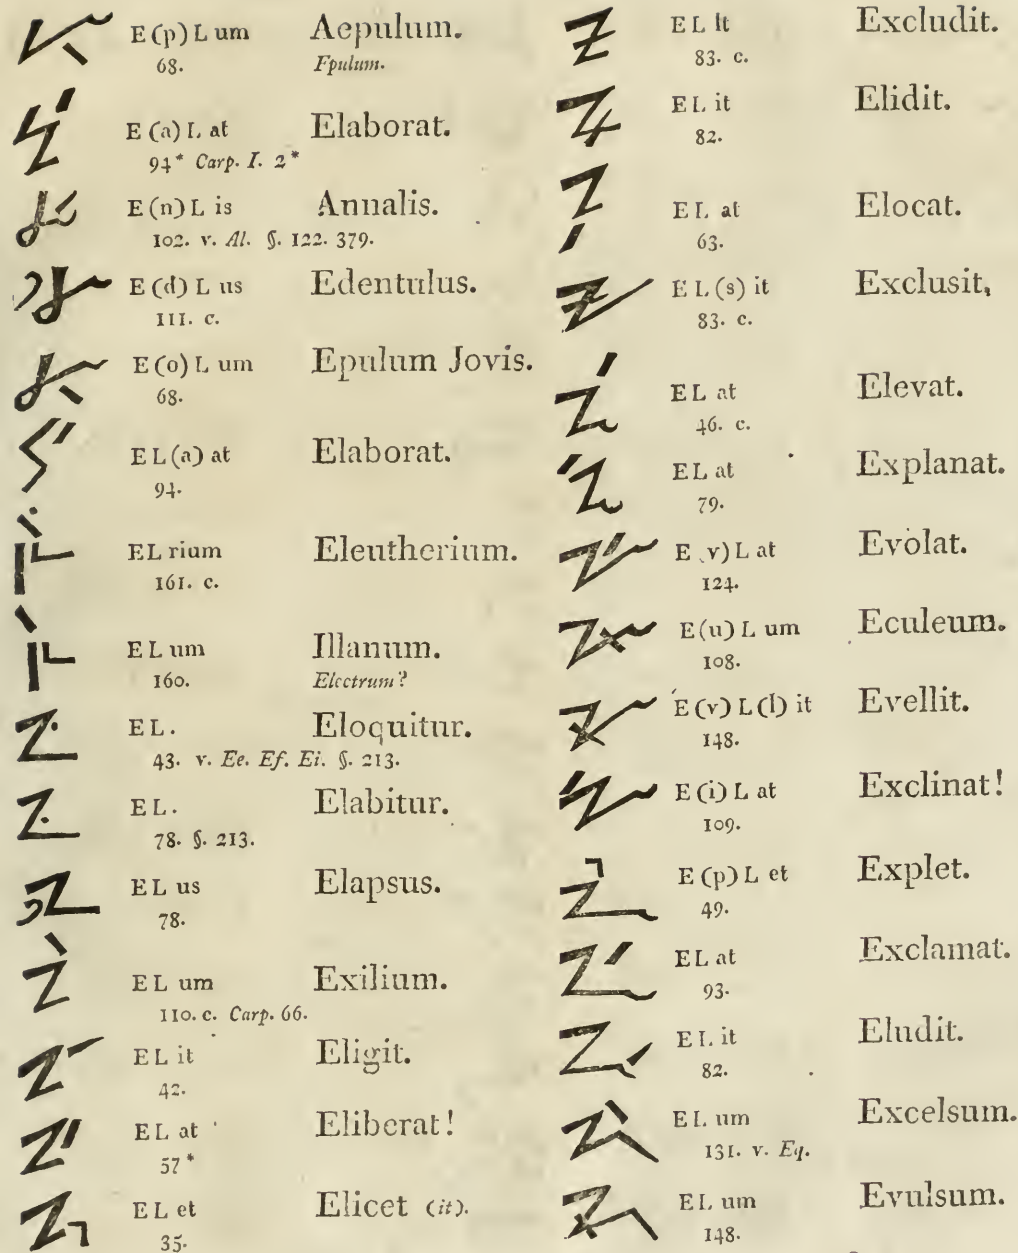 E (p) L um Aepulum.
68. Epulum.
E (a) L at Elaborat.
94* Carp. I. 2*
E (n) L is Annalis.
102. v. Al. §. 122. 379.
E (d) L us Edentulus.
111. c.
E (o) L um Epulum Jovis.
68.
E L (a) at Elaborat.
94.
E L rium Eleutherium.
161. c.
E L um Illanum.
160. Electrum?
E L. Eloquitur.
43. v. Ee. Ef. Ei. §. 213.
E L. Elabitur.
78. §. 213.
E L us Elapsus.
78.
E L um Exilium.
110. c. Carp. 66.
E L it Eligit.
42.
E L at Eliberat!
57*
E L et Elicet (it).
35.
E L it Excludit.
83. c.
E L it Elidit.
82.
E L at Elocat.
63.
E L (s) it Exclusit.
83. c.
E L at Elevat.
46. c.
E L at Explanat.
79.
E (v) L at Evolat.
124.
E (u) L um Eculeum.
108.
E (v) L (l) it Evellit.
148.
E (i) L at Exclinat!
109.
E (p) L et Explet.
49.
E L at Exclamat.
93.
E L it Eludit.
82.
E L um Excelsum.
131. v. Eq.
E L um Evulsum.
148.